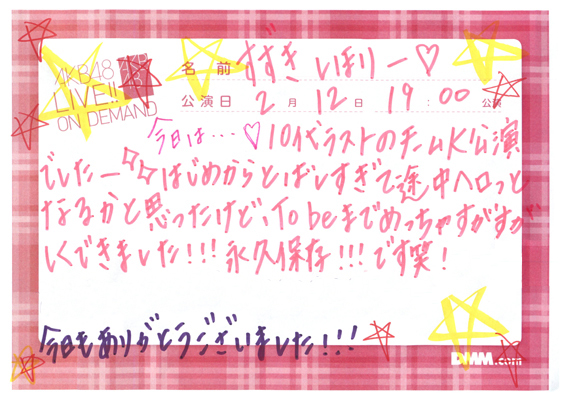 AKB48
LIVE!!
ON DEMAND
名前 すずき いほりー♡
公演日 2月 12日 19:00 公演
今日は…♡10代ラストのチームK公演
でしたーはじめからとばしすぎて途中ヘロっと
なるかと思ったけど、To beまでめっちゃすがすが
しくできました!!!永久保存!!!です笑!
今日もありがとうございました!!!
DMM.com